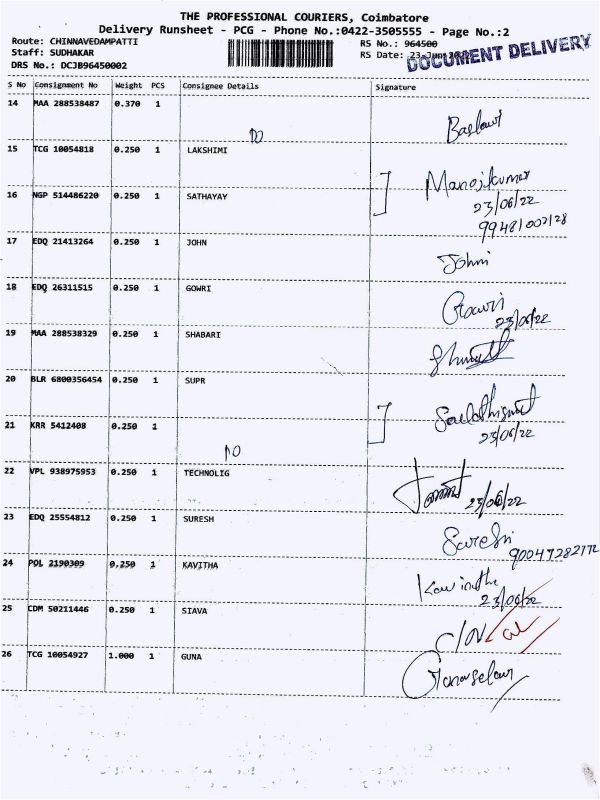 THE PROFESSIONAL COURIERS, Coimbatore
Delivery Runsheet - PCG - Phone No.:0422-3505555 - Page No.:2
Route: CHINNAVEDAMPATTI RS No.: 964500
Staff: SUDHAKAR RS Date: 23-Jun-2022
DOCUMENT DELIVERY
DRS No.: DCJB96450002
S No Consignment No Weight PCS Consignee Details Signature
14 MAA 288538487 0.370 1
DO
15 TCG 10054818 0.250 1 LAKSHIMI
Manojkumar
16 NGP 514486220 0.250 1 SATHAYAY
23/06/22
17 EDQ 21413264 0.250 1 JOHN
John
18 EDQ 26311515 0.250 1 GOWRI
Gowri
23/06/22
19 MAA 288538329 0.250 1 SHABARI
20 BLR 6800356454 0.250 1 SUPR
21 KRR 5412408 0.250 1
23/06/22
DO
22 VPL 938975953 0.250 1 TECHNOLIG
23/06/22
23 EDQ 25554812 0.250 1 SURESH
Suresh
24 POL 2190309 0.250 1 KAVITHA
23/06/22
25 CDM 50211446 0.250 1 SIAVA
26 TCG 10054927 1.000 1 GUNA